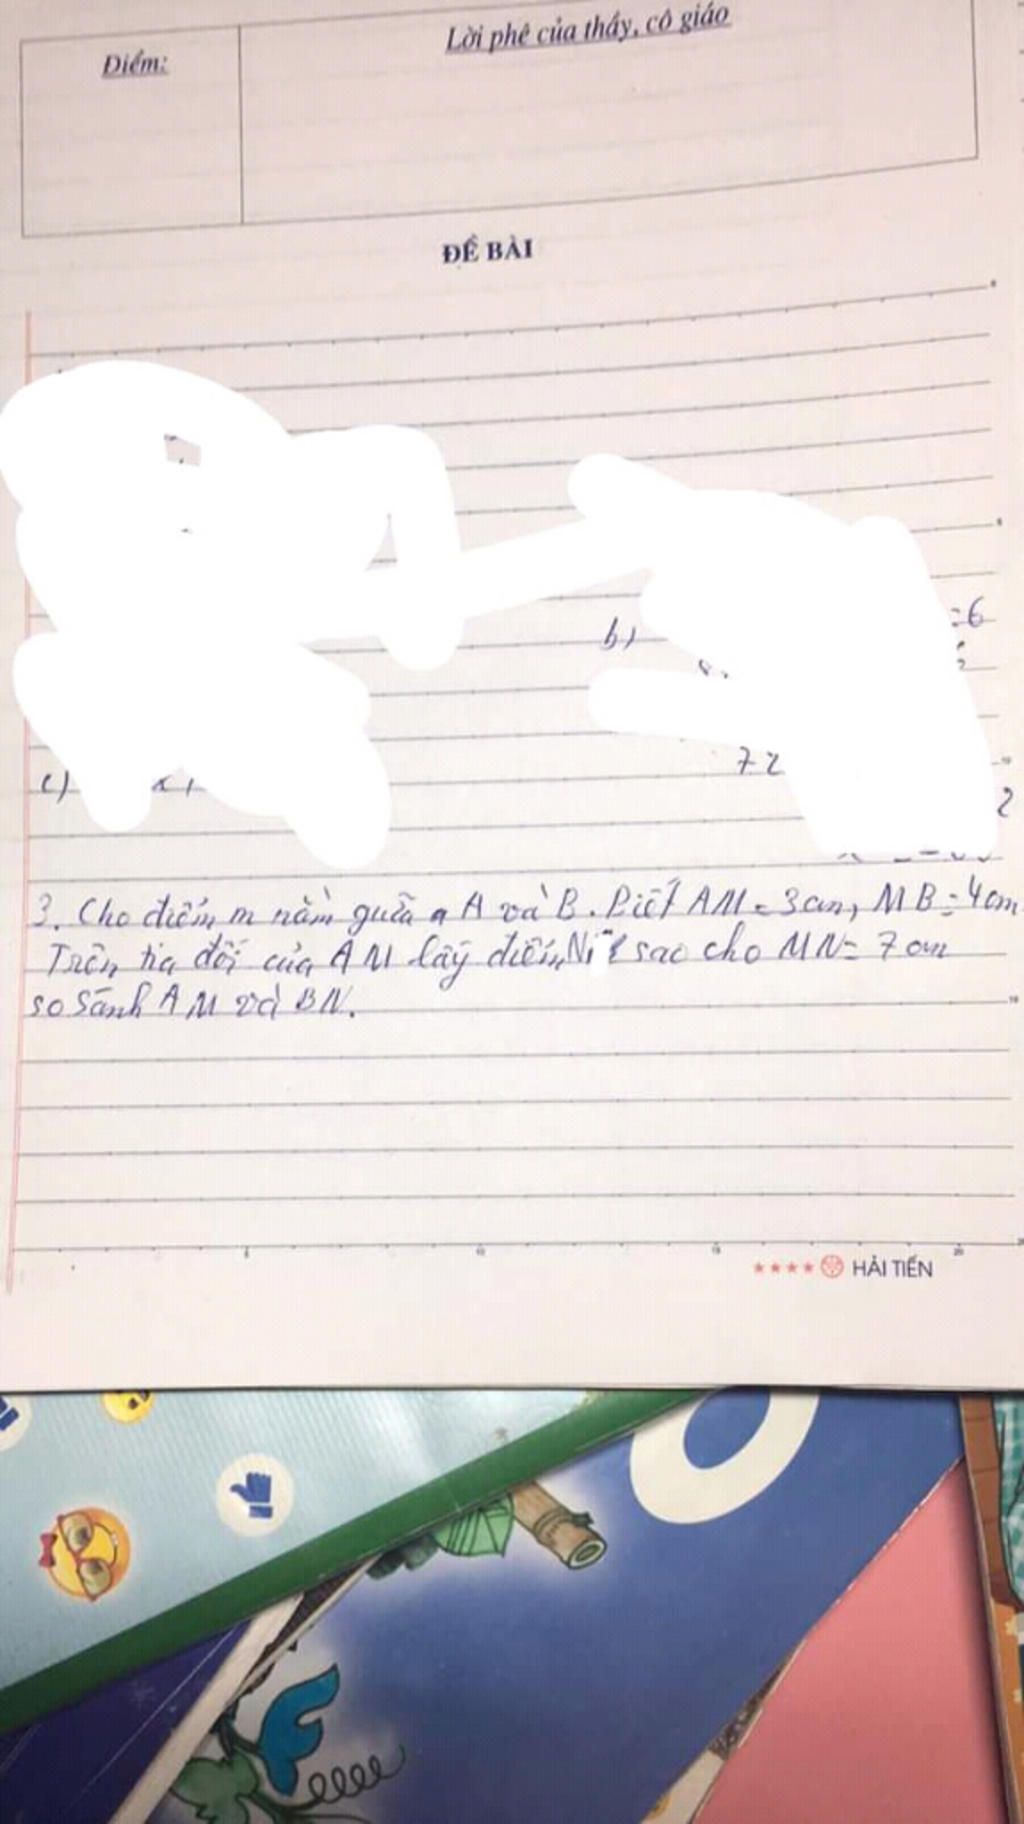 Điểm:
Lời phê của thầy, cô giáo
ĐỀ BÀI
b) =6
72
c) 2
3. Cho điểm m nằm giữa A và B. Biết AM = 3cm, MB = 4cm
Trên tia đối của AM lấy điểm N sao cho MN = 7cm
so sánh AM và BN.
HẢI TIẾN